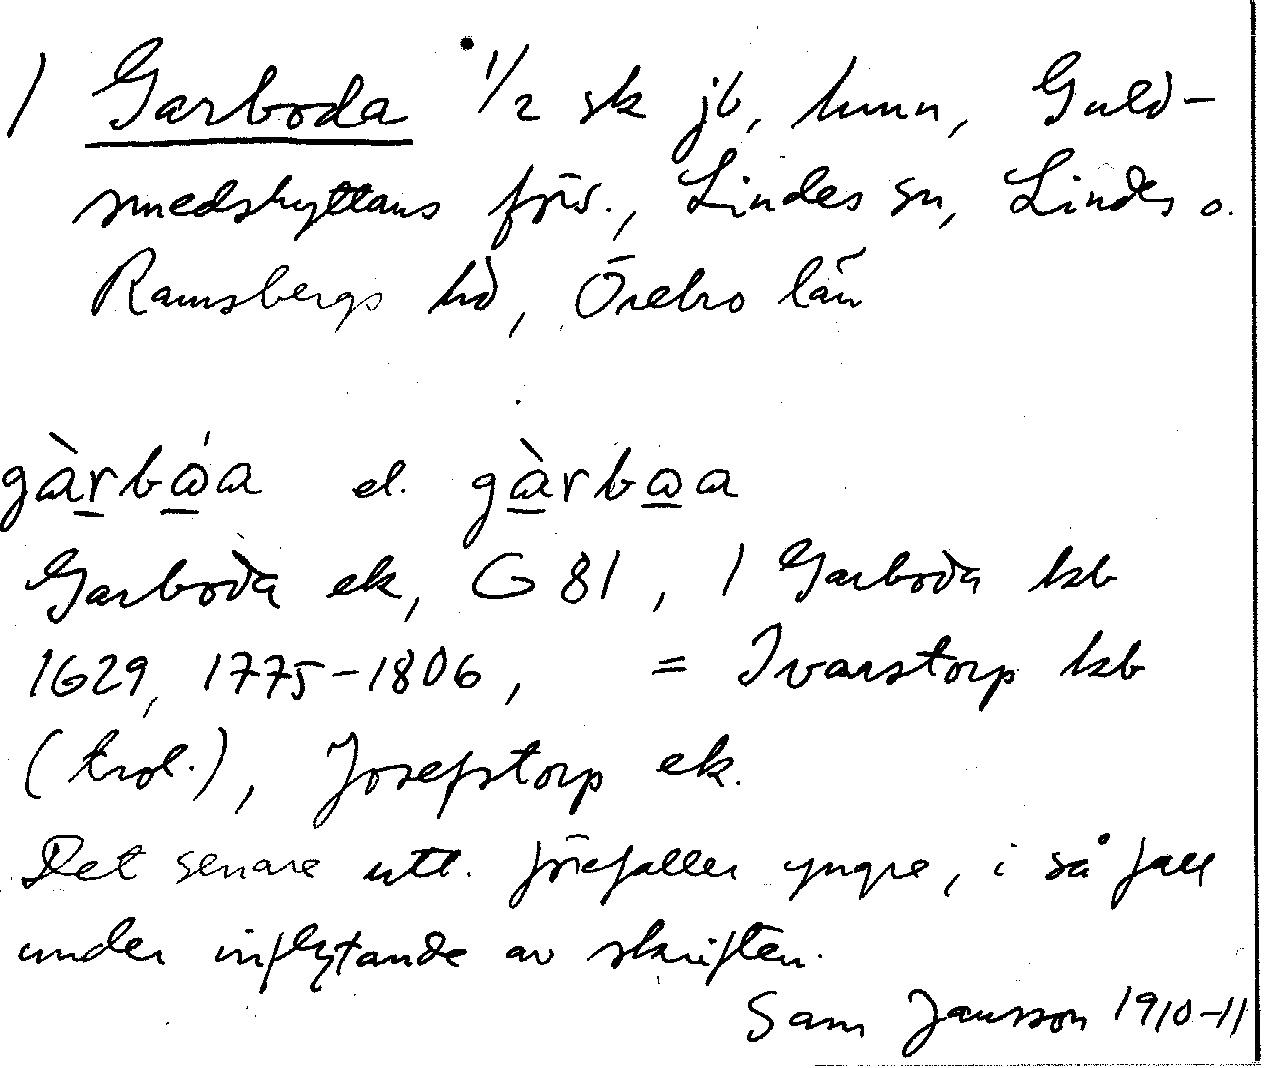 1 Garboda 1/2 sk jb, hmn, Guld-
smedshyttans förs., Lindes sn, Lindes o.
Ramsbergs hd, Örebro län
gàrbω̇a el. gàrbωa
Garboda ek, G 81, 1 Garboda kb
1629, 1775-1806, = Ivarstorp kb
(trol.), Josefstorp ek.
Det senare utt. förefaller yngre, i så fall
under inflytande av skriften.
Sam Jansson 1910-11